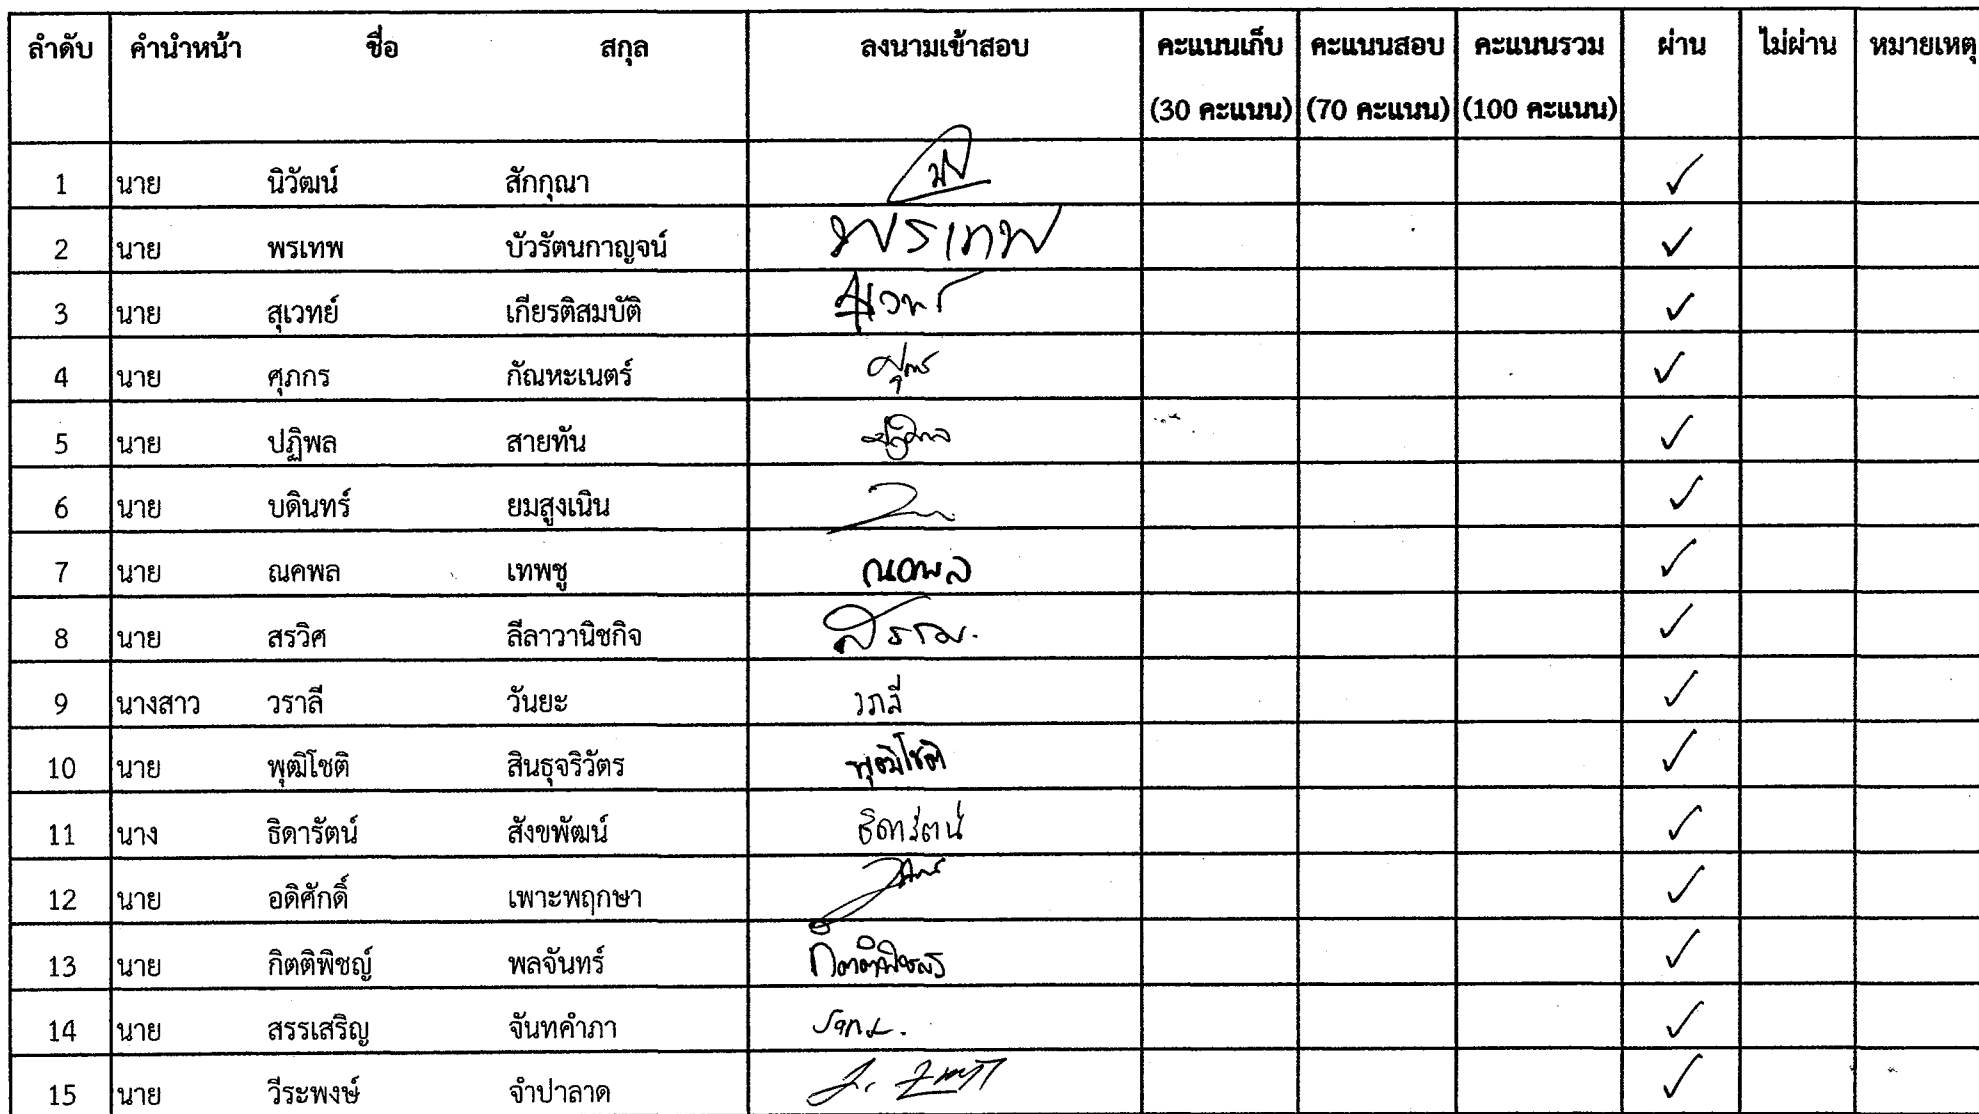 ลำดับ คำนำหน้า ชื่อ สกุล ลงนามเข้าสอบ คะแนนเก็บ คะแนนสอบ คะแนนรวม ผ่าน ไม่ผ่าน หมายเหตุ
(30 คะแนน) (70 คะแนน) (100 คะแนน)
1 นาย นิวัฒน์ สักกุณา ✓
2 นาย พรเทพ บัวรัตนกาญจน์ พรเทพ ✓
3 นาย สุเวทย์ เกียรติสมบัติ ✓
4 นาย ศุภกร กัณหะเนตร์ ✓
5 นาย ปฏิพล สายทัน ✓
6 นาย บดินทร์ ยมสูงเนิน ✓
7 นาย ณคพล เทพชู ณคพล ✓
8 นาย สรวิศ ลีลาวานิชกิจ ✓
9 นางสาว วราลี วันยะ วราลี ✓
10 นาย พุฒิโชติ สินธุจริวัตร พุฒิโชติ ✓
11 นาง ธิดารัตน์ สังขพัฒน์ ธิดารัตน์ ✓
12 นาย อดิศักดิ์ เพาะพฤกษา ✓
13 นาย กิตติพิชญ์ พลจันทร์ ✓
14 นาย สรรเสริญ จันทคำภา ✓
15 นาย วีระพงษ์ จำปาลาด ✓